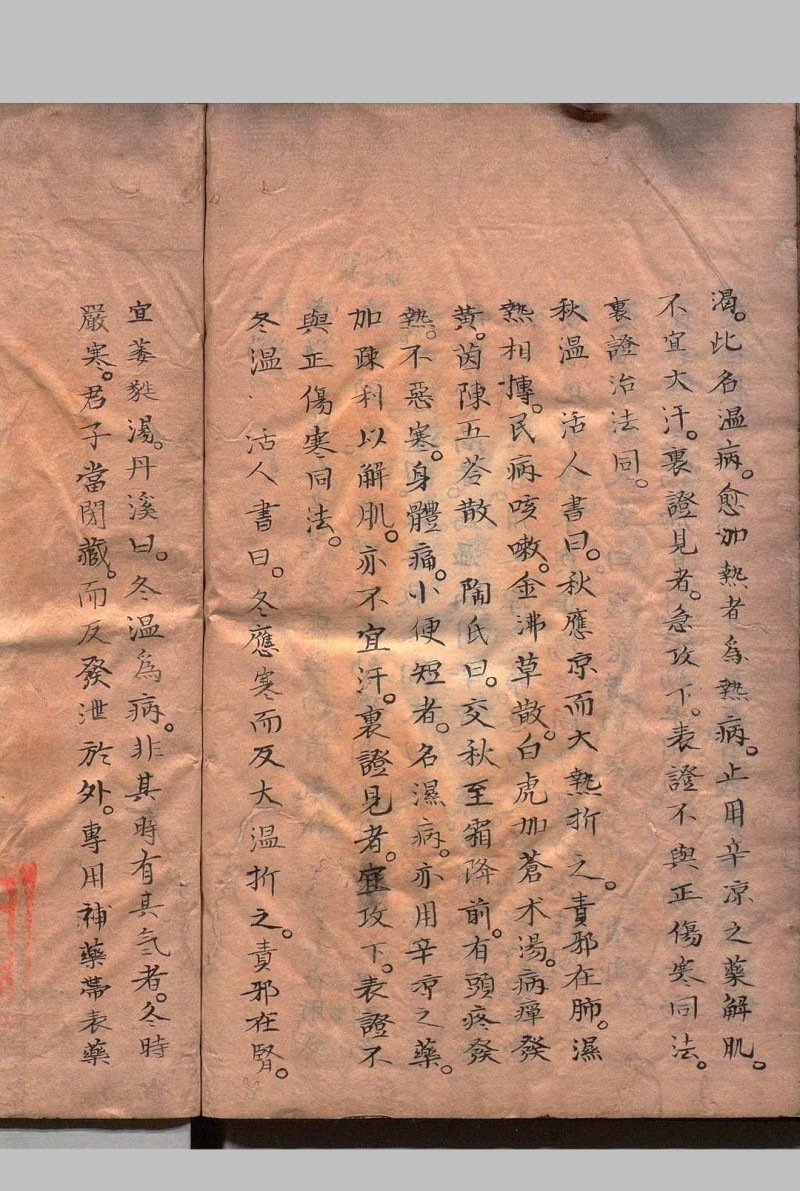 渴。比名溫病。愈加熱者為熱病。止用辛凉之藥解肌。
不宜大汗。裏證見者。急攻下。表證不與正傷寒同法。
裏證治法同。
秋溫 活人書曰。秋應凉而大熱折之。責邪在肺。濕
熱相摶。民病咳嗽。金沸草散。白虎加蒼术湯。病瘅發
黄。茵陳五苓散 陶氏曰。交秋至霜降前。有頭疼發
熱。不惡寒。身體痛。小便短者。名濕病。亦用辛凉之藥。
加疎利以解肌。亦不宜汗。裏證見者。宜攻下。表證不
與正傷寒同法。
冬溫 活人書曰。冬應寒而反大溫折之。責邪在腎。
宜萎蕤湯。丹溪曰。冬溫爲病。非其時有其气者。冬時
嚴寒。君子當閉藏。而反發泄於外。專用補藥帶表藥